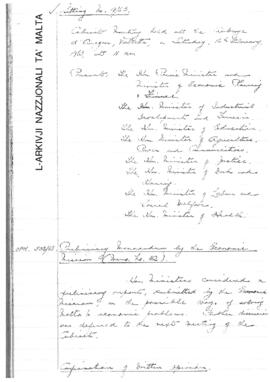 L-ARKIVJI NAZZJONALI TA' MALTA
Sitting No. 9/63
Cabinet Meeting held at the Auberge
d'Aragon, Valletta, on Saturday, 16th February,
at 11 am
Present: The Hon. Prime Minister and
Minister of Economic Planning
& Finance
The Hon. Minister of Industrial
Development and Tourism
The Hon. Minister of Education
The Hon. Minister of Agriculture,
Power and Communications
The Hon. Minister of Justice
The Hon. Minister of Works and
Housing
The Hon. Minister of Labour and
Social Welfare
The Hon. Minister of Health
OPM. /63
Preliminary Memorandum by the Economic
Mission (Memo. No. 42)
Hon. Ministers considered a
preliminary report, submitted by the Economic
Mission, on the possible ways of solving
Malta's economic problems. Further discussion
was deferred to the next meeting of the
Cabinet.